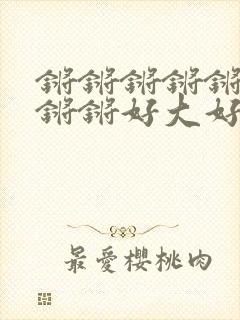 锵锵锵锵锵
锵锵好大好
最愛櫻桃肉